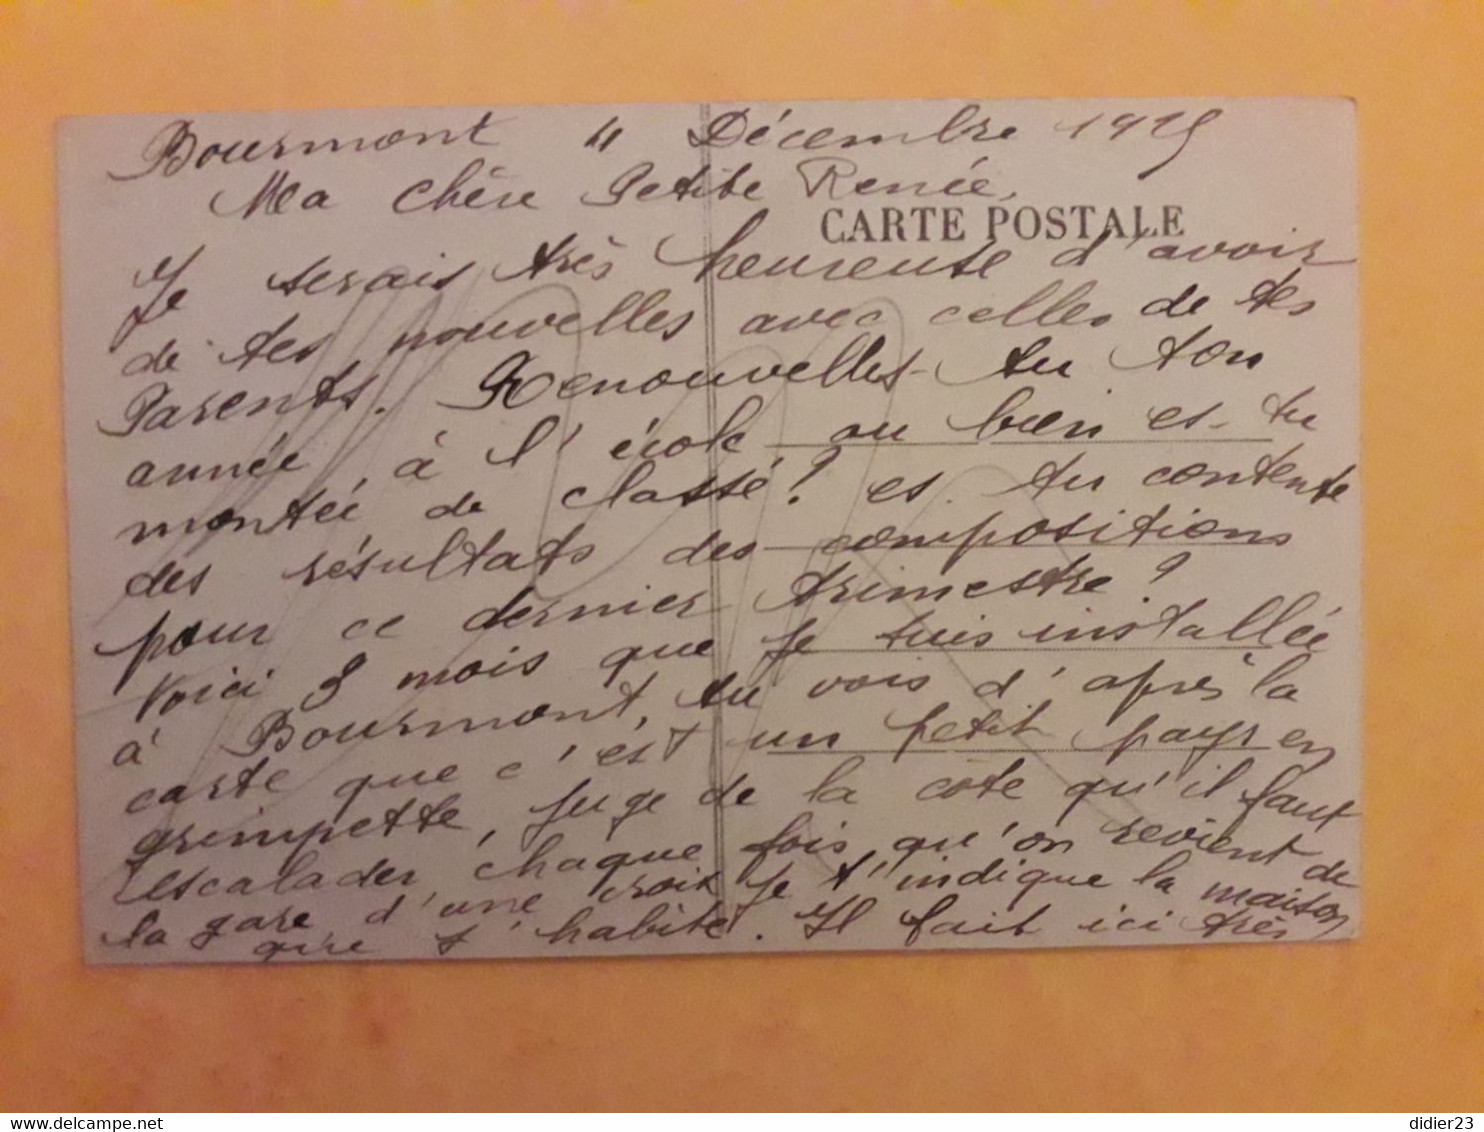 Bourmont 11 Décembre 1915
Ma chère Petite Renée,
CARTE POSTALE
Je serais très heureuse d'avoir
de tes nouvelles avec celles de tes
Parents. Renouvelles-tu ton
année à l'école ou bien es-tu
montée de classe? es-tu contente
des résultats des compositions
pour ce dernier trimestre?
Voici 8 mois que je suis installée
à Bourmont, tu vois d'après la
carte que c'est un petit pays en
grimpette, juge de la côte qu'il faut
escalader chaque fois qu'on revient de
la gare d'une croix je t'indique la maison
que j'habite. Il fait ici très
didier23